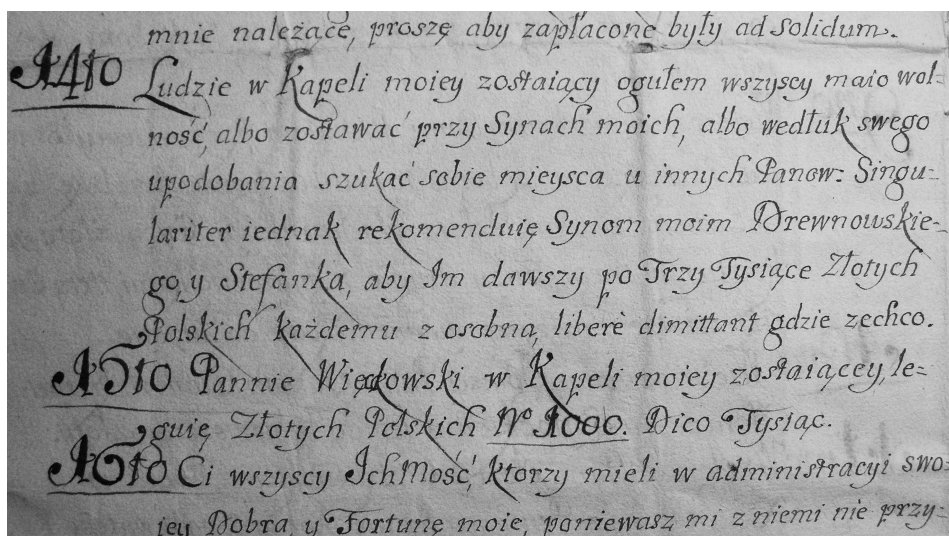 mnie należące, proszę aby zapłacone były ad Solidum.
14to Ludzie w Kapeli moiey zostaiący ogułem wszyscy maio wol=
ność, albo zostawać przy Synach moich, albo wedłuk swego
upodobania szukać sobie mieysca u innych Panow: Singu=
lariter iednak rekomenduię Synom moim Drewnowskie=
go, y Stefanka, aby Im dawszy po Trzy Tysiące Złotych
Polskich każdemu z osobna, liberè dimittant gdzie zechco.
15to Pannie Więckowski w Kapeli moiey zostaiącey, le=
guię Złotych Polskich No 1000. Dico Tysiąc.
16to Ci wszyscy IchMość, ktorzy mieli w administracyi swo=
iey Dobra, y Fortunę moie, poniewasz mi z niemi nie przy=